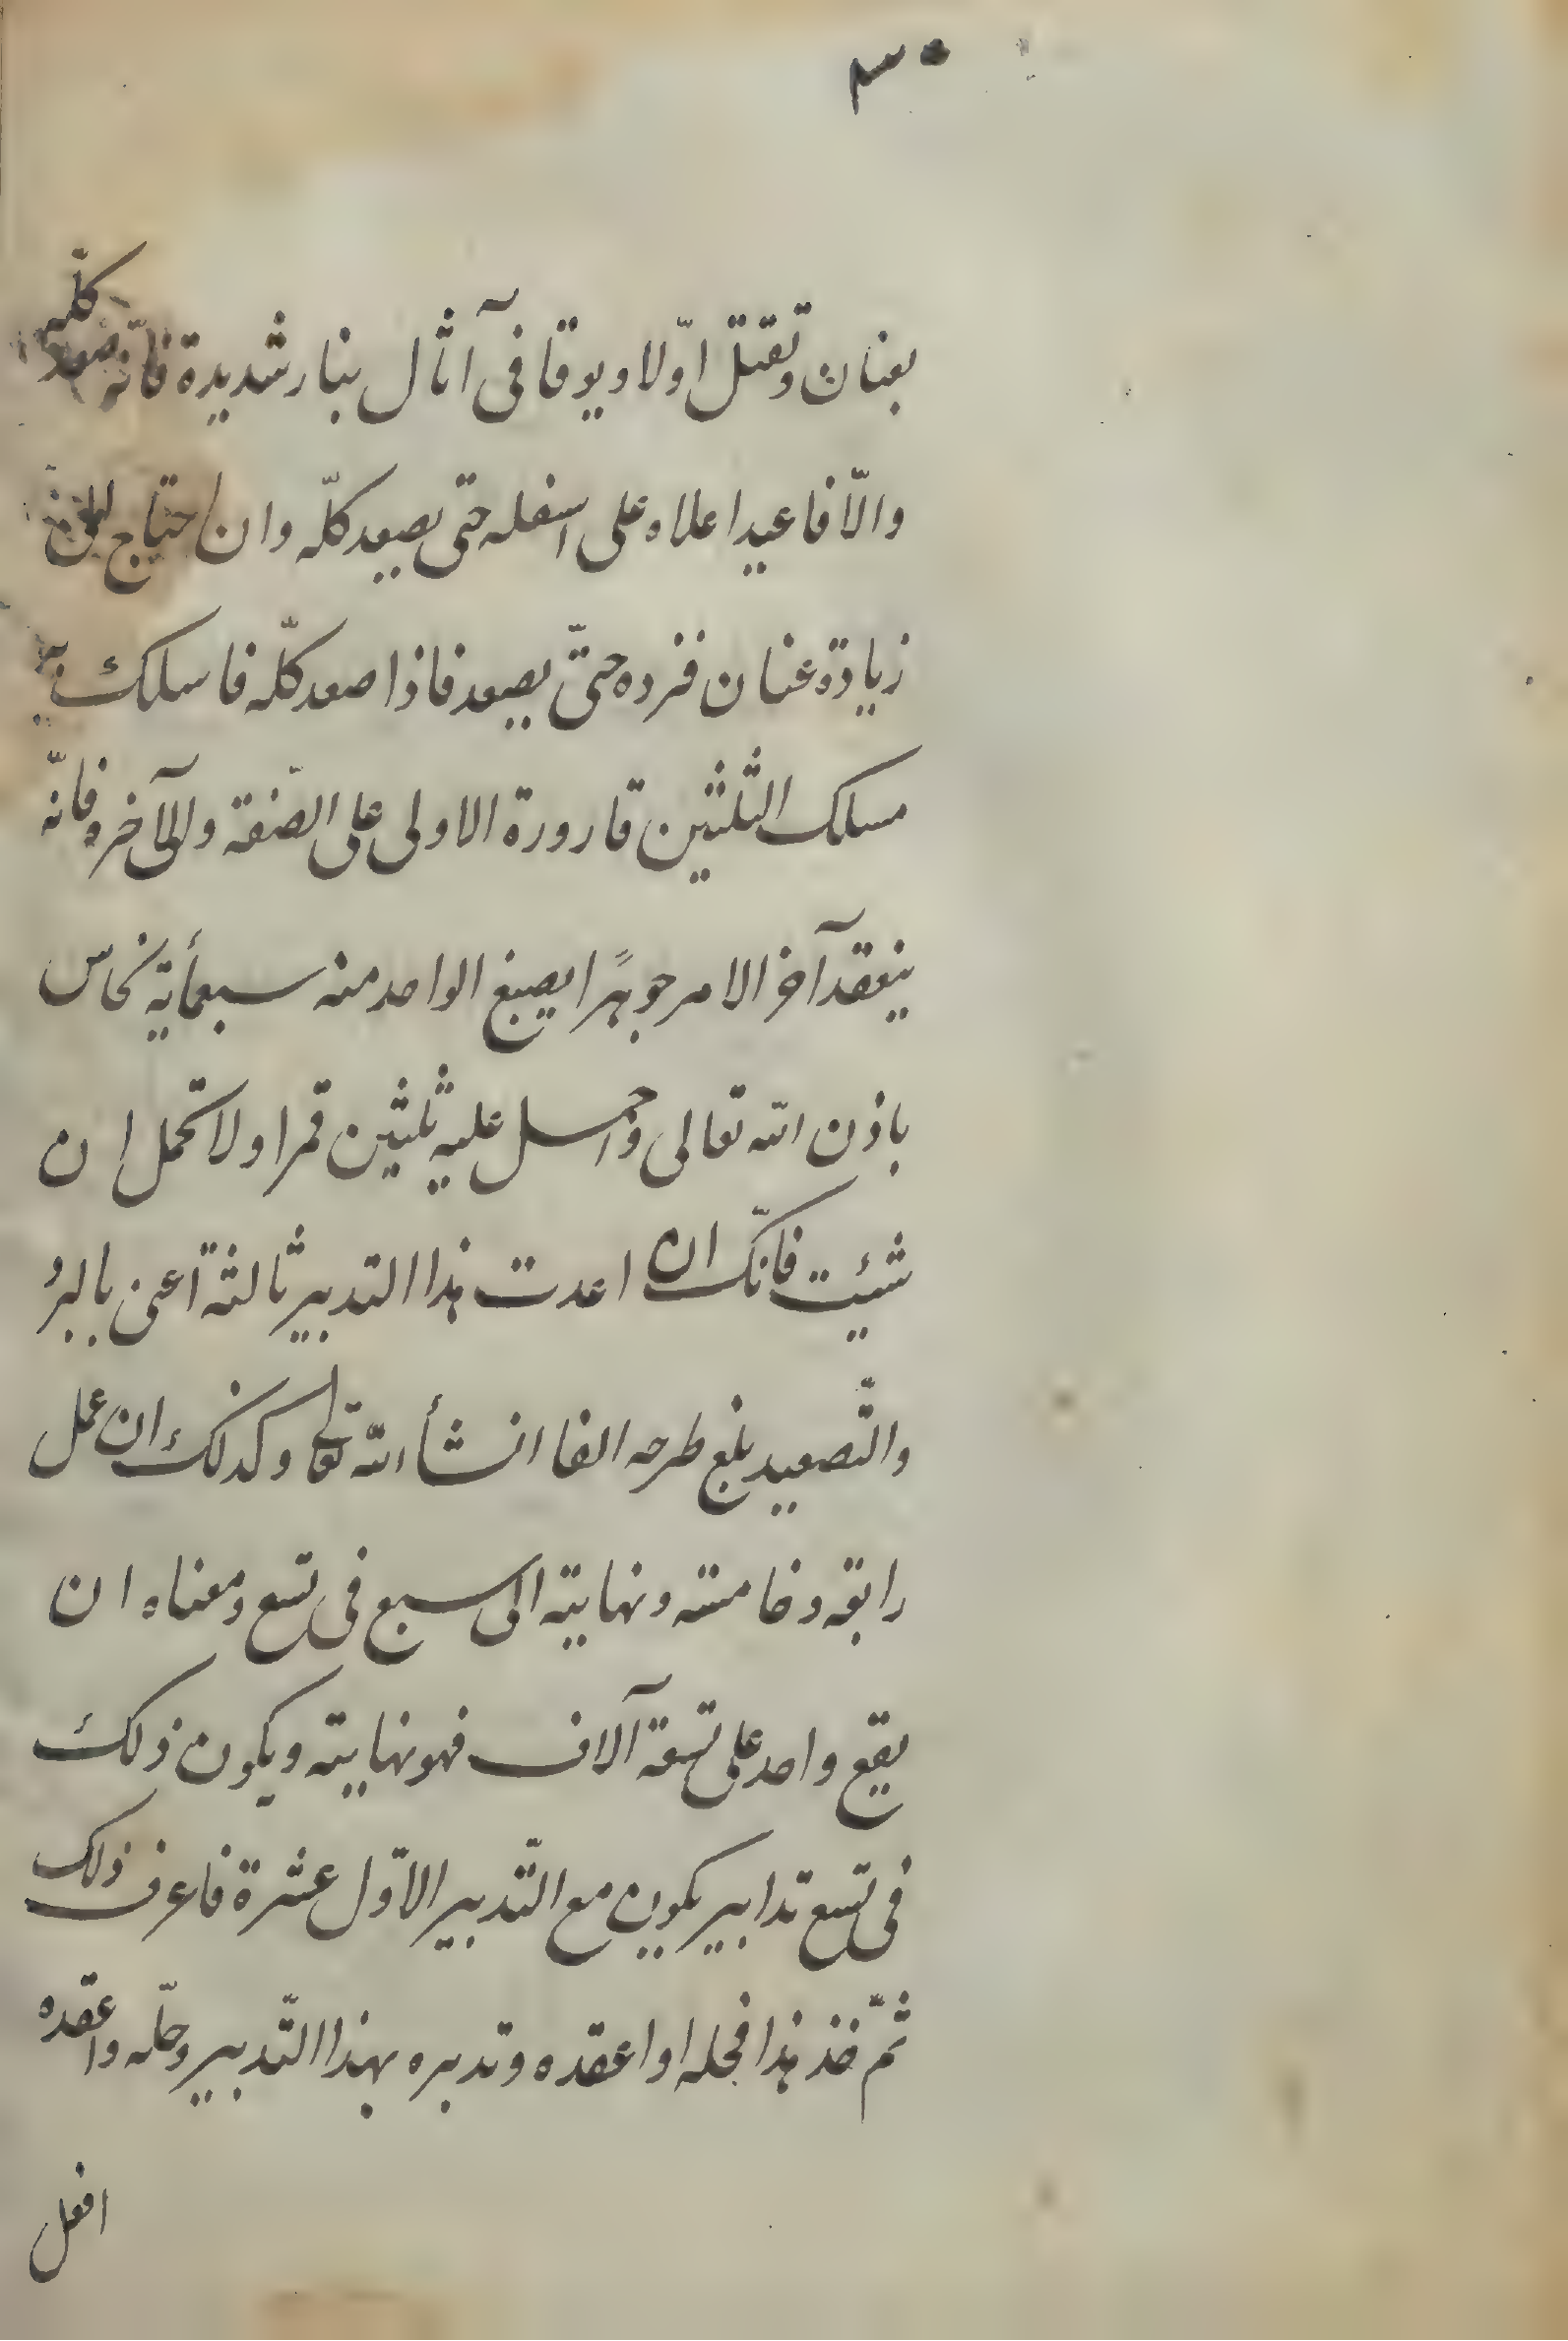 ٣٠
بعنان وتقتل اوّلا ويوقا فى آثال بنار شديدة فانّه صعد كلّه
والّا فاعيد اعلاه على اسفله حتى يصعد كلّه وان احتاج الى
زيادة عنان فزده حتىّ يصعد فاذا صعد كلّه فاسلك به
مسلك الثلثين قارورة الاولى على الصّنفة والى آخره فانّه
ينعقد آخر الامر جوهرًا يصبغ الواحد منه سبعمأية نحاس
باذن الله تعالى واحمل عليه ثلثين قمرا ولا تحمل ان
شئت فانّك ان اعدت هذا التدبير ثالثة اعنى بالبرُ
والتّصعيد بلغ طرحه الفا انشأ الله تعالى وكذلك ان عمل
رابعة وخامسته ونهايته الى سبع فى تسع ومعناه ان
يقع واحد على تسعة آلاف فهو نهايته ويكون ذلك
فى تسع تدابير يكون مع التّدبير الاوّل عشرة فاعرف ذلك
ثمّ خذ هذا فحله او اعقده وتدبره بهذا التّدبير وحلّه واعقده
افعل